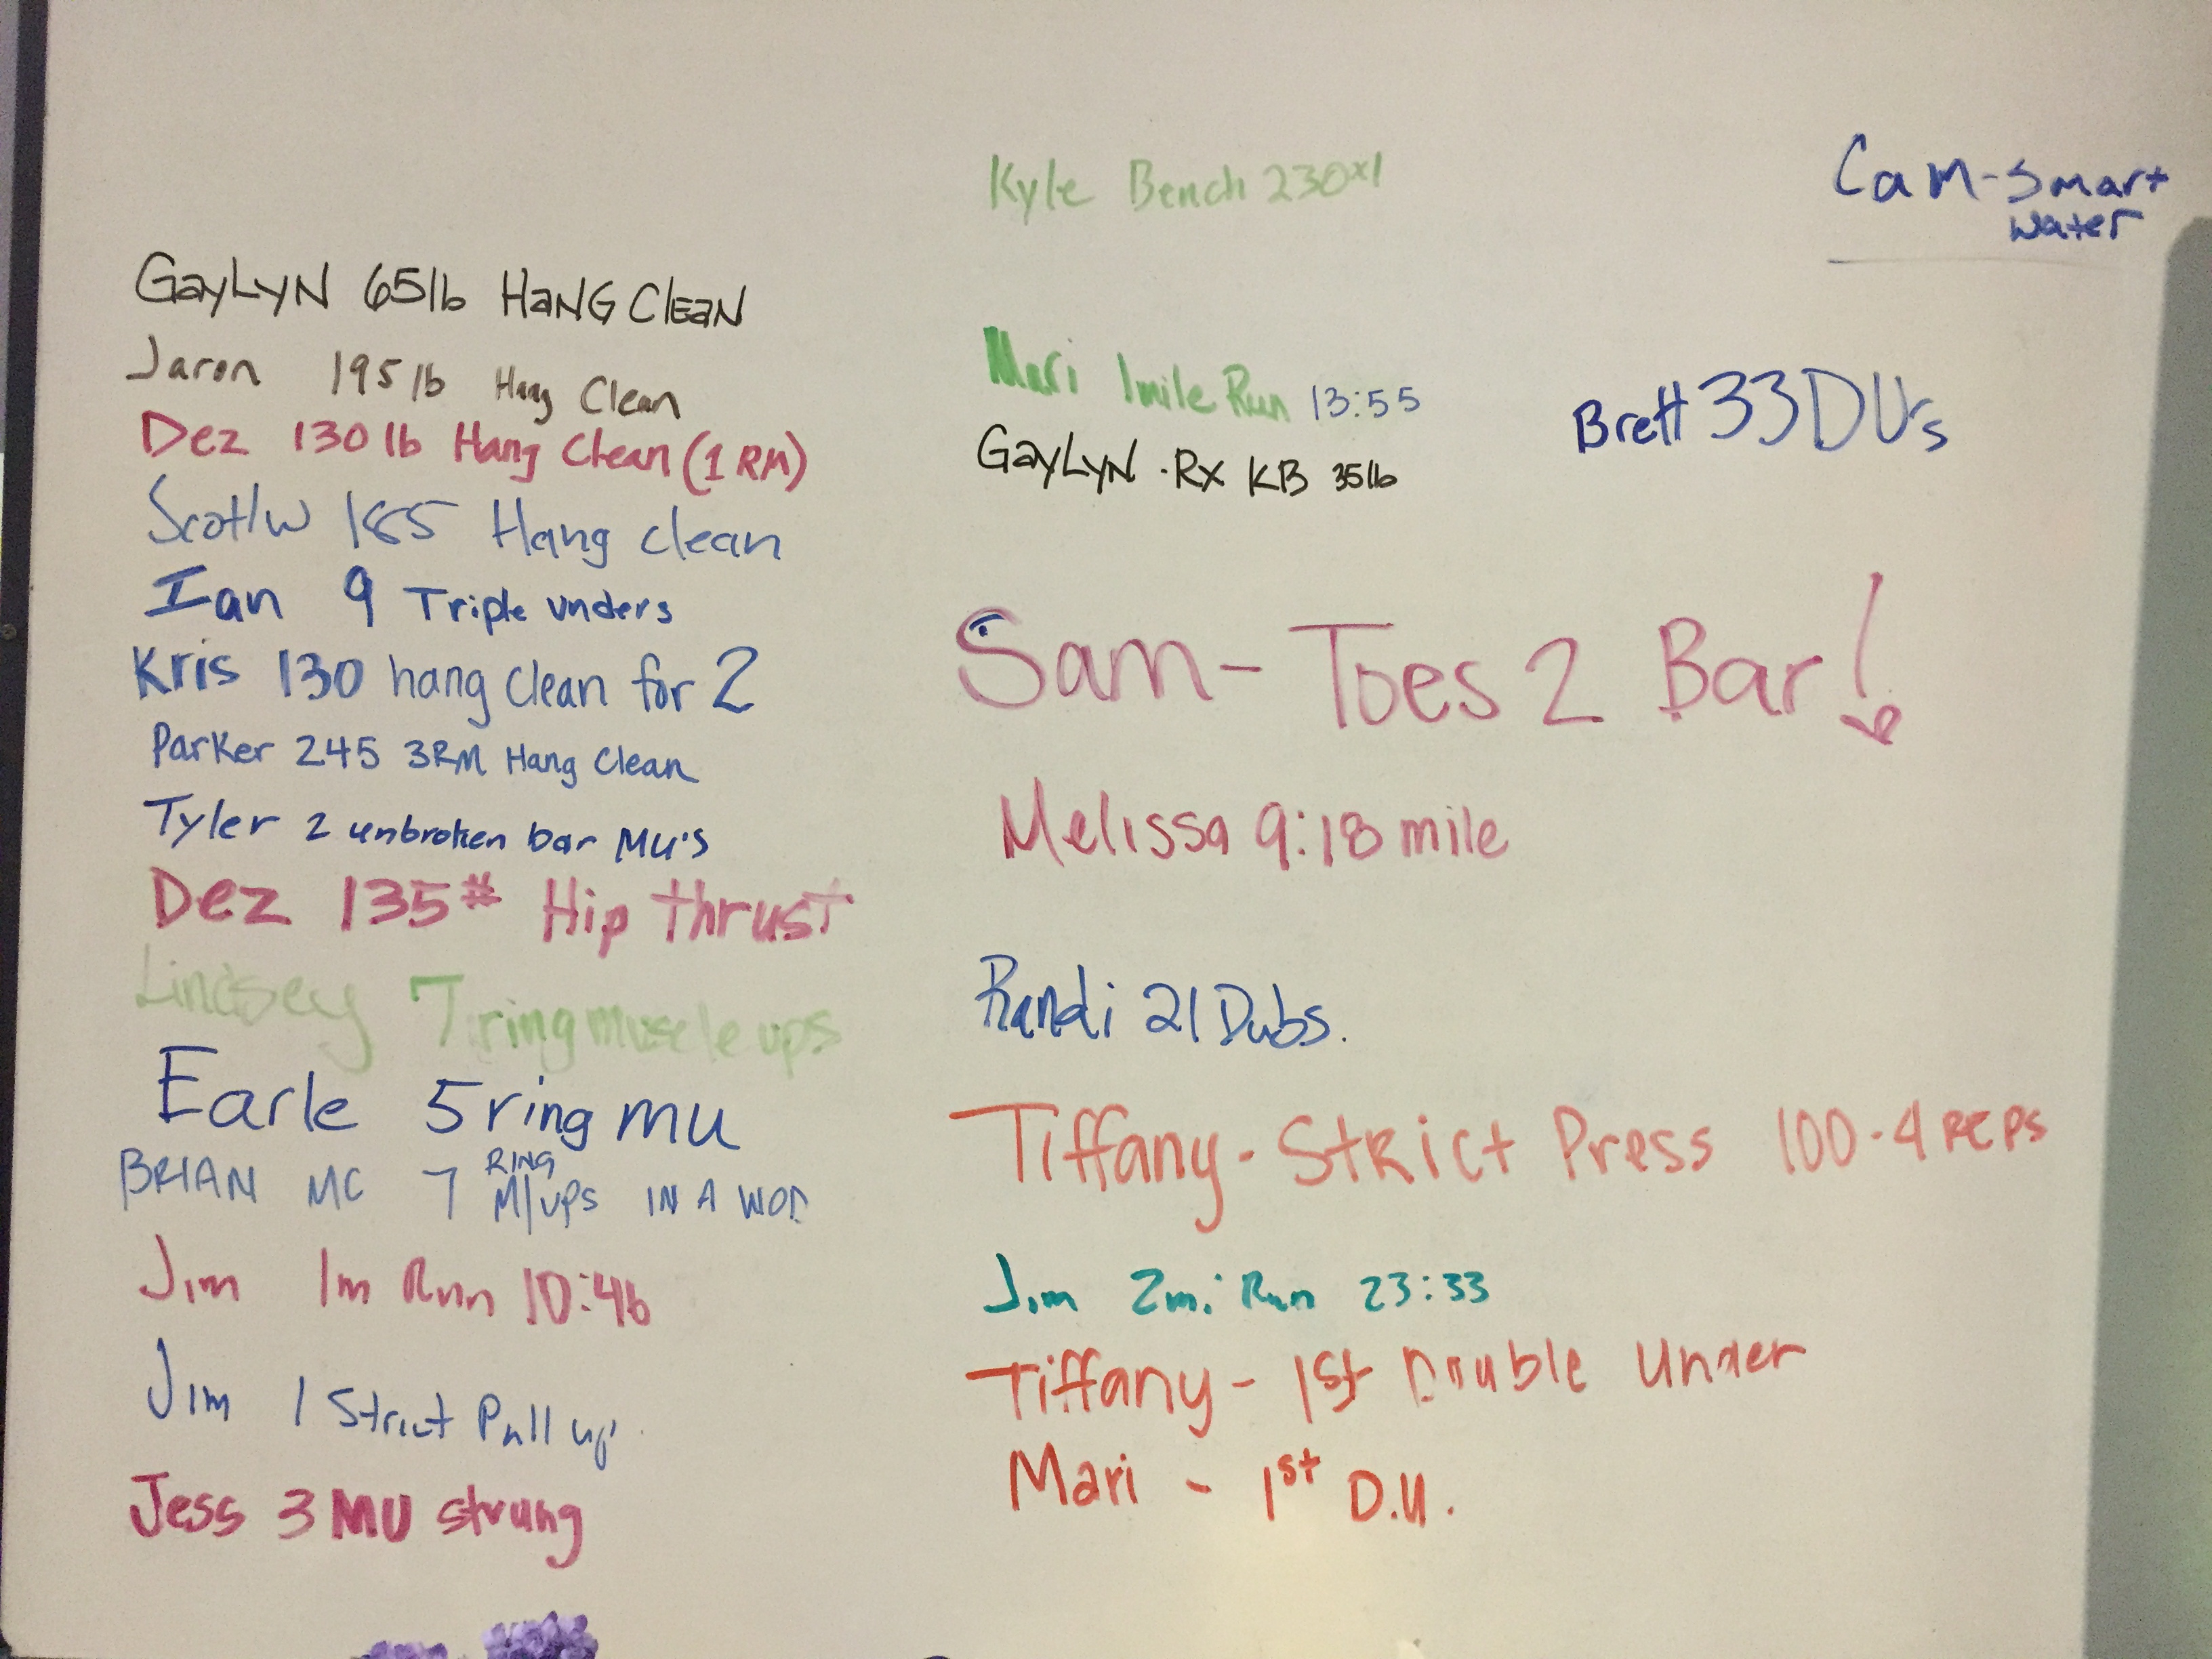 GayLyN 65lb HaNG ClEaN
Jaron 195 lb Hang Clean
Dez 130 lb Hang Clean (1 RM)
Scott/w 185 Hang clean
Ian 9 Triple unders
Kris 130 hang clean for 2
Parker 245 3RM Hang Clean
Tyler 2 unbroken bar MU's
Dez 135# Hip thrust
Lindsey 7 ring muscle ups
Earle 5 ring mu
BRIAN MC 7 RING M/UPS IN A WOD
Jim 1m Run 10:46
Jim 1 Strict Pull up
Jess 3 MU strung
Kyle Bench 230x1
Mari 1mile Run 13:55
GayLyN · Rx KB 35lb
Sam - Toes 2 Bar!
Melissa 9:18 mile
Randi 21 Dubs.
Tiffany - Strict Press 100 - 4 REPS
Jim 2mi Run 23:33
Tiffany - 1st Double Under
Mari - 1st D.U.
Cam - Smart
water
Brett 33 DUs